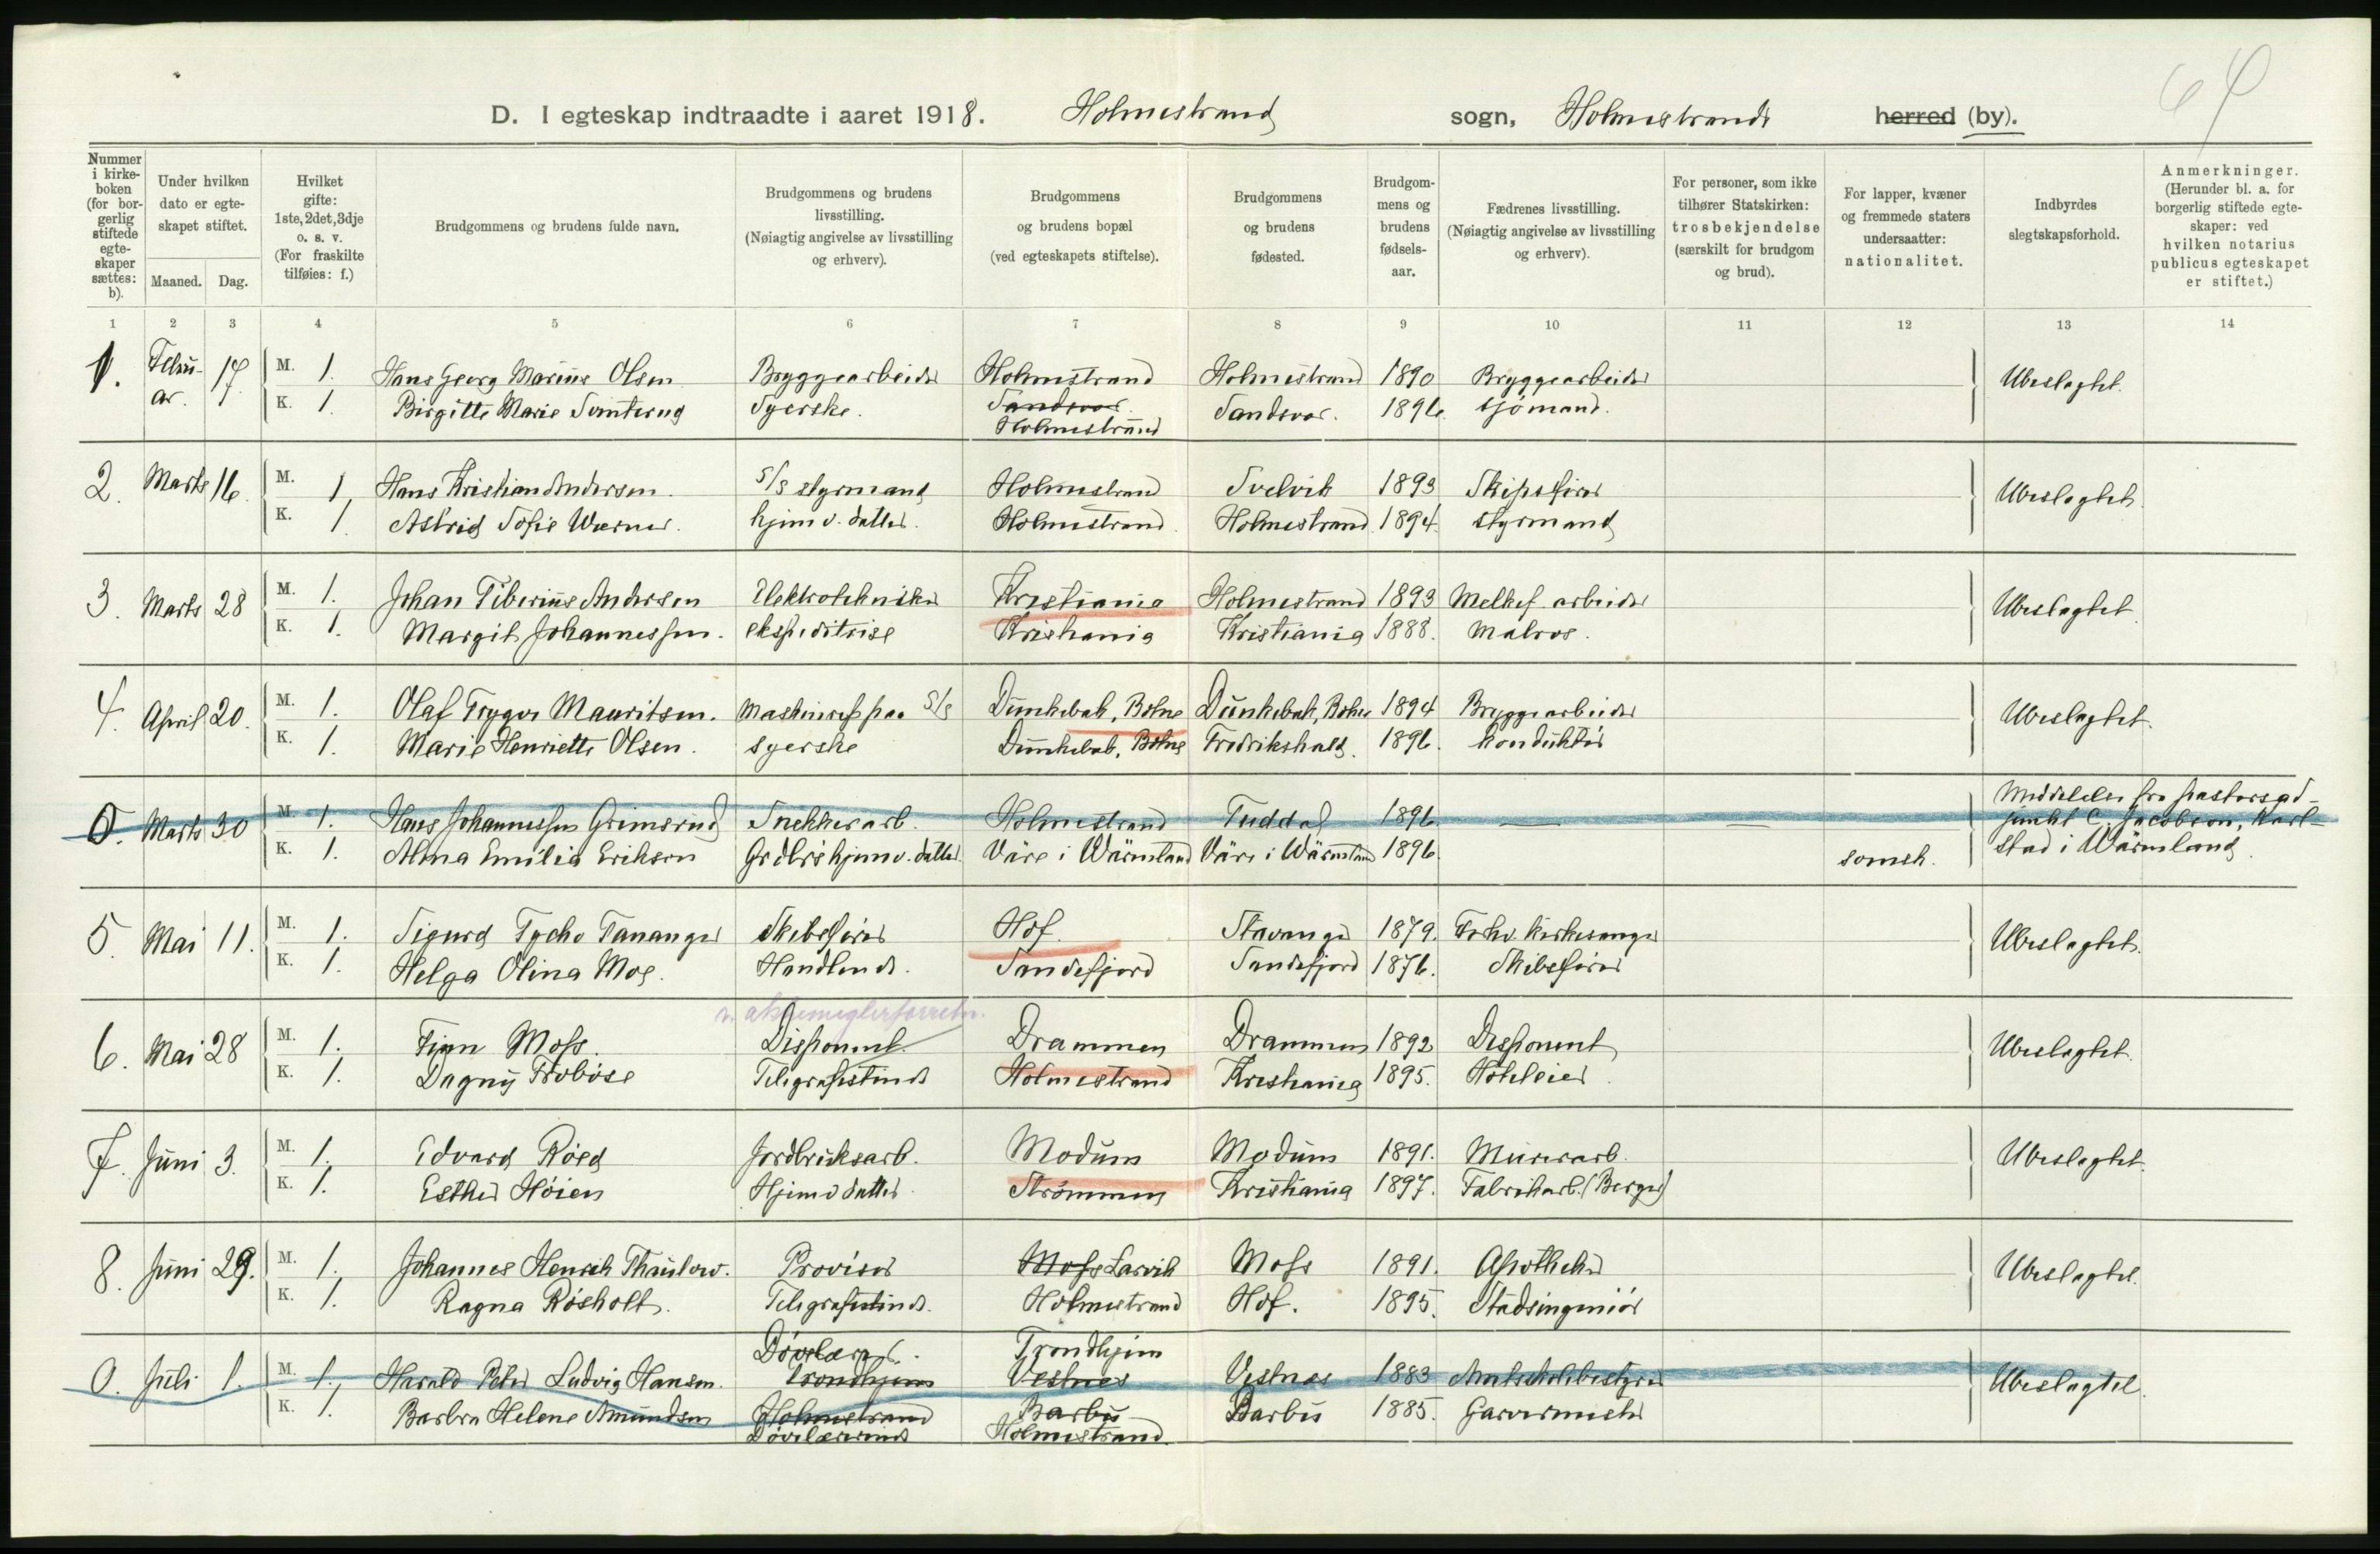 64
D. I egteskap indtraadte i aaret 1918. Holmestrand sogn, Holmestrands herred (by).
Nummer i kirkeboken (for borgerlig stiftede egteskaper sættes: b).
Under hvilken dato er egteskapet stiftet.
Maaned. Dag.
Hvilket gifte: 1ste, 2det, 3dje o. s. v. (For fraskilte tilføies: f.)
Brudgommens og brudens fulde navn.
Brudgommens og brudens livsstilling. (Nøiagtig angivelse av livsstilling og erhverv).
Brudgommens og brudens bopæl (ved egteskapets stiftelse).
Brudgommens og brudens fødested.
Brudgommens og brudens fødselsaar.
Fædrenes livsstilling. (Nøiagtig angivelse av livsstilling og erhverv).
For personer, som ikke tilhører Statskirken: trosbekjendelse (særskilt for brudgom og brud).
For lapper, kvæner og fremmede staters undersaatter: nationalitet.
Indbyrdes slegtskapsforhold.
Anmerkninger. (Herunder bl. a. for borgerlig stiftede egteskaper: ved hvilken notarius publicus egteskapet er stiftet.)
1 2 3 4 5 6 7 8 9 10 11 12 13 14
1. Februar. 17. M. 1. Hans Georg Marius Olsen Bryggearbeider Holmestrand Holmestrand 1890 Bryggearbeider Ubeslegtet.
K. 1. Birgitte Marie Syerske. Sandsvær. Sandsvær. 1896. Sjømand.
Holmestrand
2. Marts 16. M. 1. Hans Kristian Andersen. S/S styrmand Holmestrand Svelvik 1893 Skipsfører Ubeslegtet.
K. 1. Astrid Sofie Werner. hjemv. datter. Holmestrand Holmestrand 1894. styrmand
3. Marts 28 M. 1. Johan Tiberius Andersen Elektrotekniker Kristiania Holmestrand 1893 Melkef. arbeider Ubeslegtet
K. 1. Margit Johannessen. ekspeditrise Kristiania Kristiania 1888. Malros.
4. April 20. M. 1. Olaf Trygve Mauritsen. Maskinist paa S/S Dunkebak, Botne Dunkebak, Botne 1894 Bryggearbeider Ubeslegtet.
K. 1. Marie Henriette Olsen. syerske Dunkebak, Botne Fredrikshald. 1896. konduktør
0. Marts 30 M. 1. Hans Johannessen Grimsrud Snekkerarb. Holmestrand Tuddal 1896. — — Meddelelse fra pastorsad-
junkt C. Jacobson, Karl-
K. 1. Alma Emilia Erikson Grdbrs hjemv. datter. Väse i Wärmland Väse i Wärmland 1896. svensk. stad i Wärmland.
5. Mai 11. M. 1. Sigurd Tycho Tananger Skibsfører Hof. Stavanger 1879. Forhv. kirkesanger Ubeslegtet.
K. 1. Helga Olina Moe. Handlende. Sandefjord Sandefjord 1876. Skibsfører
v. aktiemeglerforretn.
6. Mai 28 M. 1. Finn Moss. Disponent. Drammen Drammen 1892 Disponent Ubeslegtet.
K. 1. Dagny Trobøse Telegrafistinde Holmestrand Kristiania 1895. Hoteleier.
7. Juni 3. M. 1. Edvard Røed Jordbruksarb. Modum Modum 1891. Murerarb. Ubeslegtet.
K. 1. Esther Høien Hjemv datter. Strømmen Kristiania 1897. Fabrikarb. (Berger)
8. Juni 29. M. 1. Johannes Henrik Thaulow. Provisor Moss Larvik Moss 1891. Apotheker Ubeslegtet.
K. 1. Ragna Røsholt. Telegrafistinde. Holmestrand Hof. 1895. Stadsingeniør
Døvelærer. Trondhjem
0. Juli 1. M. 1. Harald Peter Ludvig Hansen. Trondhjem Vestnes Vestnes 1883 Amtskolebestyrer Ubeslegtet.
K. 1. Barbra Helene Amundsen Holmestrand Barbu Barbu 1885. Garvermester
Døvelærerinde Holmestrand.